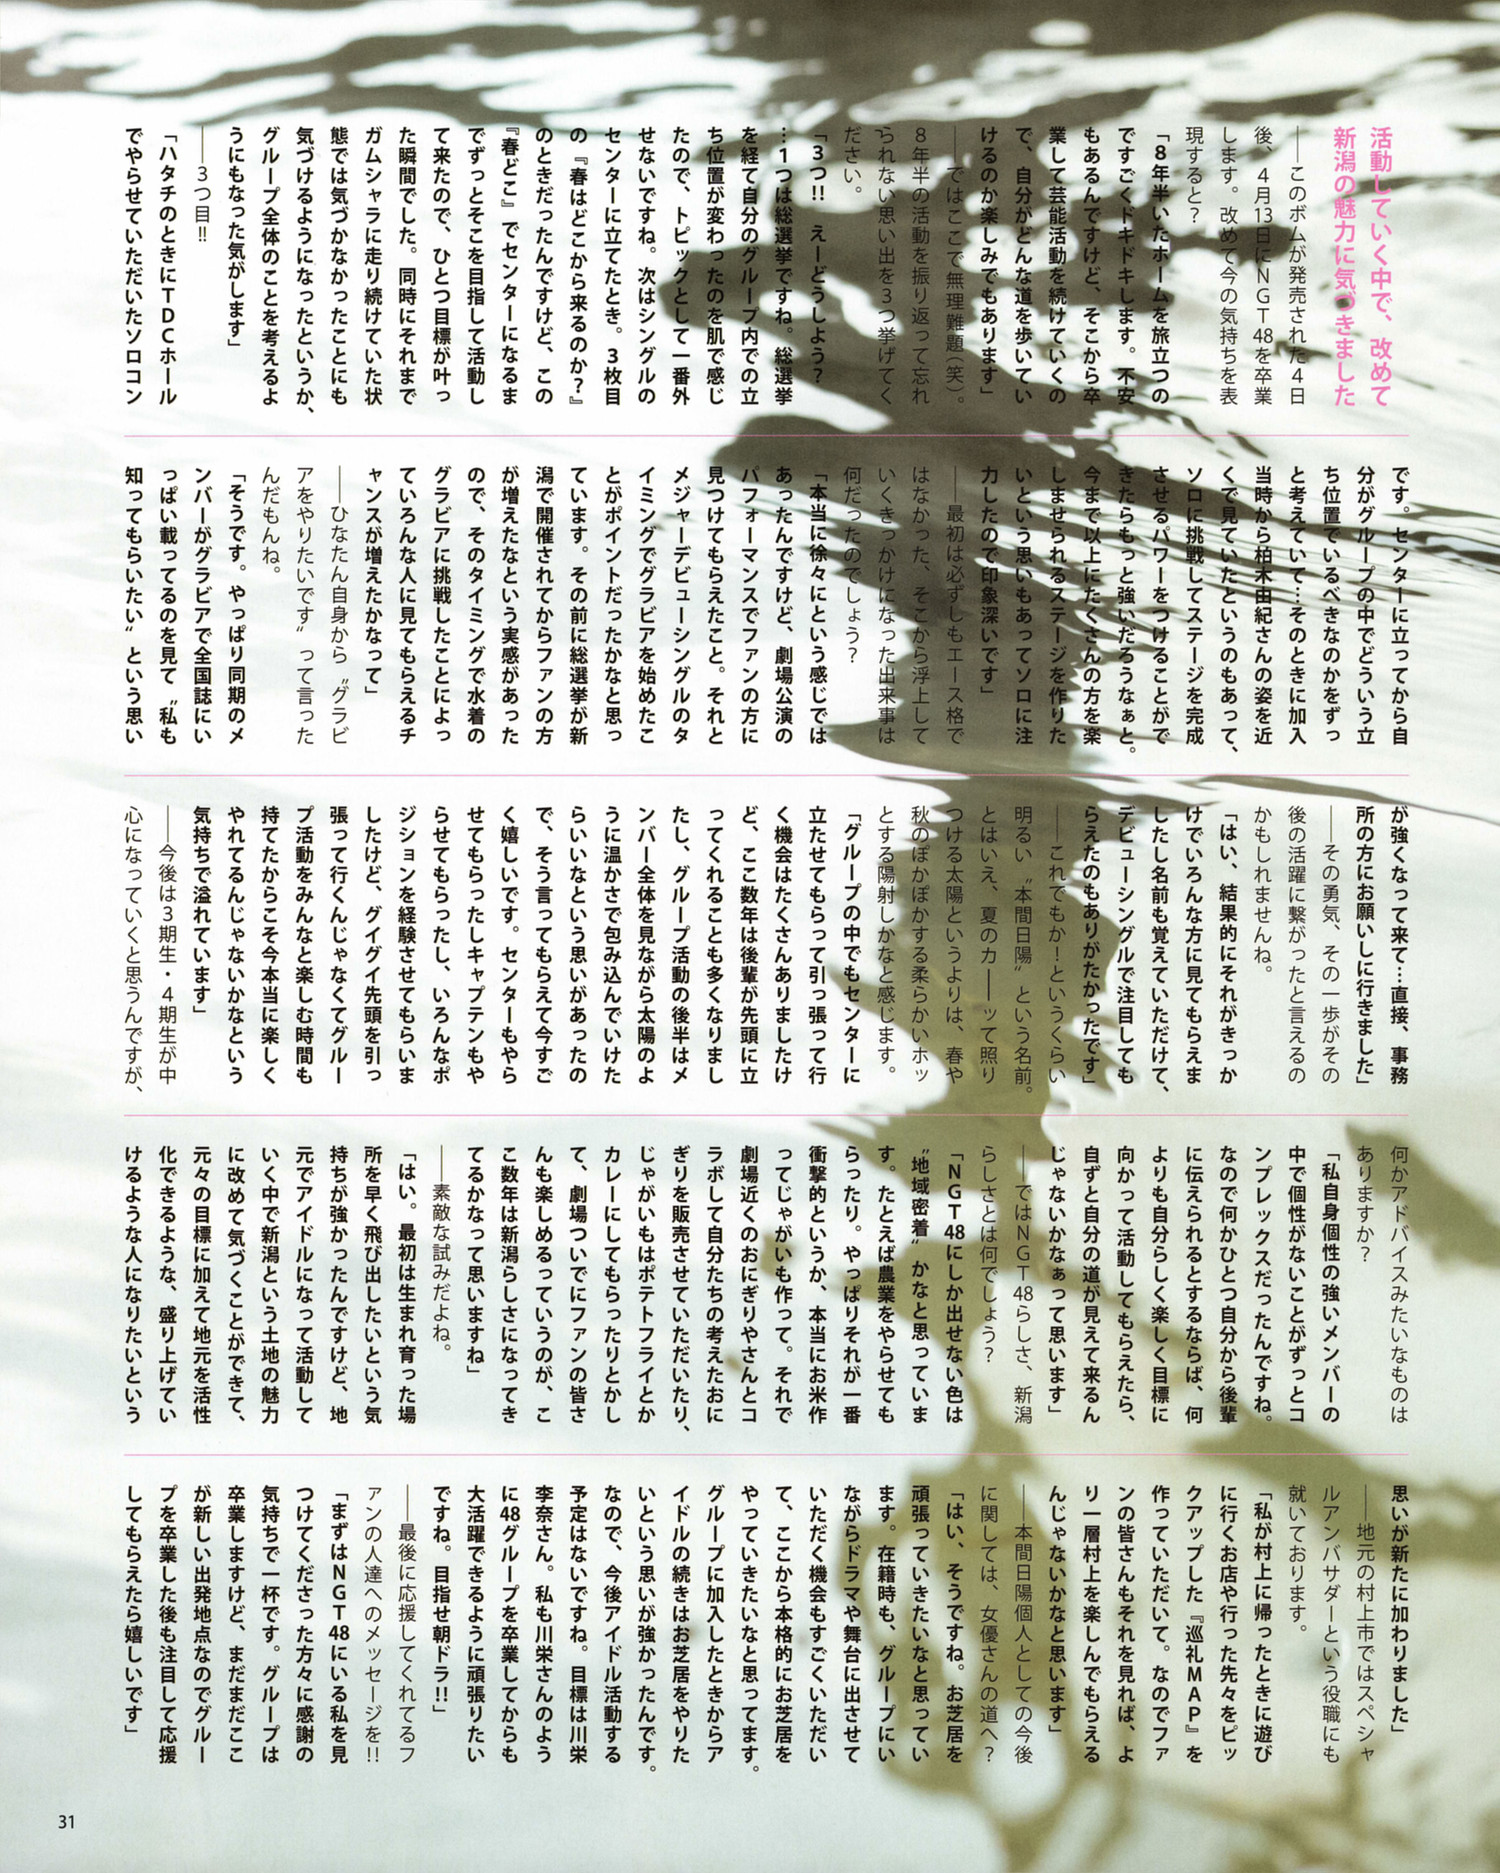 活動していく中で、改めて
新潟の魅力に気づきました
――このボムが発売された4日
後、4月13日にNGT48を卒業
します。改めて今の気持ちを表
現すると？
「8年半いたホームを旅立つの
ですごくドキドキします。不安
もあるんですけど、そこから卒
業して芸能活動を続けていくの
で、自分がどんな道を歩いてい
けるのか楽しみでもあります」
――ではここで無理難題（笑）。
8年半の活動を振り返って忘れ
られない思い出を3つ挙げてく
ださい。
「3つ!!　えーどうしよう？
…1つは総選挙ですね。総選挙
を経て自分のグループ内での立
ち位置が変わったのを肌で感じ
たので、トピックとして一番外
せないですね。次はシングルの
センターに立てたとき。3枚目
の『春はどこから来るのか？』
のときだったんですけど、この
『春どこ』でセンターになるま
でずっとそこを目指して活動し
て来たので、ひとつ目標が叶っ
た瞬間でした。同時にそれまで
ガムシャラに走り続けていた状
態では気づかなかったことにも
気づけるようになったというか、
グループ全体のことを考えるよ
うにもなった気がします」
――3つ目!!
「ハタチのときにTDCホール
でやらせていただいたソロコン
です。センターに立ってから自
分がグループの中でどういう立
ち位置でいるべきなのかをずっ
と考えていて…そのときに加入
当時から柏木由紀さんの姿を近
くで見ていたというのもあって、
ソロに挑戦してステージを完成
させるパワーをつけることがで
きたらもっと強いだろうなぁと。
今まで以上にたくさんの方を楽
しませられるステージを作りた
いという思いもあってソロに注
力したので印象深いです」
――最初は必ずしもエース格で
はなかった、そこから浮上して
いくきっかけになった出来事は
何だったのでしょう？
「本当に徐々にという感じでは
あったんですけど、劇場公演の
パフォーマンスでファンの方に
見つけてもらえたこと。それと
メジャーデビューシングルのタ
イミングでグラビアを始めたこ
とがポイントだったかなと思っ
ています。その前に総選挙が新
潟で開催されてからファンの方
が増えたなという実感があった
ので、そのタイミングで水着の
グラビアに挑戦したことによっ
ていろんな人に見てもらえるチ
ャンスが増えたかなって」
――ひなたん自身から〝グラビ
アをやりたいです〟って言った
んだもんね。
「そうです。やっぱり同期のメ
ンバーがグラビアで全国誌にい
っぱい載ってるのを見て〝私も
知ってもらいたい〟という思い
が強くなって来て…直接、事務
所の方にお願いしに行きました」
――その勇気、その一歩がその
後の活躍に繋がったと言えるの
かもしれませんね。
「はい、結果的にそれがきっか
けでいろんな方に見てもらえま
したし名前も覚えていただけて、
デビューシングルで注目しても
らえたのもありがたかったです」
――これでもか！というくらい
明るい〝本間日陽〟という名前。
とはいえ、夏のカ――ッて照り
つける太陽というよりは、春や
秋のぽかぽかする柔らかいホッ
とする陽射しかなと感じます。
「グループの中でもセンターに
立たせてもらって引っ張って行
く機会はたくさんありましたけ
ど、ここ数年は後輩が先頭に立
ってくれることも多くなりまし
たし、グループ活動の後半はメ
ンバー全体を見ながら太陽のよ
うに温かさで包み込んでいけた
らいいなという思いがあったの
で、そう言ってもらえて今すご
く嬉しいです。センターもやら
せてもらったしキャプテンもや
らせてもらったし、いろんなポ
ジションを経験させてもらいま
したけど、グイグイ先頭を引っ
張って行くんじゃなくてグルー
プ活動をみんなと楽しむ時間も
持てたからこそ今本当に楽しく
やれてるんじゃないかなという
気持ちで溢れています」
――今後は3期生・4期生が中
心になっていくと思うんですが、
何かアドバイスみたいなものは
ありますか？
「私自身個性の強いメンバーの
中で個性がないことがずっとコ
ンプレックスだったんですね。
なので何かひとつ自分から後輩
に伝えられるとするならば、何
よりも自分らしく楽しく目標に
向かって活動してもらえたら、
自ずと自分の道が見えて来るん
じゃないかなぁって思います」
――ではNGT48らしさ、新潟
らしさとは何でしょう？
「NGT48にしか出せない色は
〝地域密着〟かなと思っていま
す。たとえば農業をやらせても
らったり。やっぱりそれが一番
衝撃的というか、本当にお米作
ってじゃがいも作って。それで
劇場近くのおにぎりやさんとコ
ラボして自分たちの考えたおに
ぎりを販売させていただいたり、
じゃがいもはポテトフライとか
カレーにしてもらったりとかし
て、劇場ついでにファンの皆さ
んも楽しめるっていうのが、こ
こ数年は新潟らしさになってき
てるかなって思いますね」
――素敵な試みだよね。
「はい。最初は生まれ育った場
所を早く飛び出したいという気
持ちが強かったんですけど、地
元でアイドルになって活動して
いく中で新潟という土地の魅力
に改めて気づくことができて、
元々の目標に加えて地元を活性
化できるような、盛り上げてい
けるような人になりたいという
思いが新たに加わりました」
――地元の村上市ではスペシャ
ルアンバサダーという役職にも
就いております。
「私が村上に帰ったときに遊び
に行くお店や行った先々をピッ
クアップした『巡礼MAP』を
作っていただいて。なのでファ
ンの皆さんもそれを見れば、よ
り一層村上を楽しんでもらえる
んじゃないかなと思います」
――本間日陽個人としての今後
に関しては、女優さんの道へ？
「はい、そうですね。お芝居を
頑張っていきたいなと思ってい
ます。在籍時も、グループにい
ながらドラマや舞台に出させて
いただく機会もすごくいただい
て、ここから本格的にお芝居を
やっていきたいなと思ってます。
グループに加入したときからア
イドルの続きはお芝居をやりた
いという思いが強かったんです。
なので、今後アイドル活動する
予定はないですね。目標は川栄
李奈さん。私も川栄さんのよう
に48グループを卒業してからも
大活躍できるように頑張りたい
ですね。目指せ朝ドラ!!」
――最後に応援してくれてるフ
ァンの人達へのメッセージを!!
「まずはNGT48にいる私を見
つけてくださった方々に感謝の
気持ちで一杯です。グループは
卒業しますけど、まだまだここ
が新しい出発地点なのでグルー
プを卒業した後も注目して応援
してもらえたら嬉しいです」
31